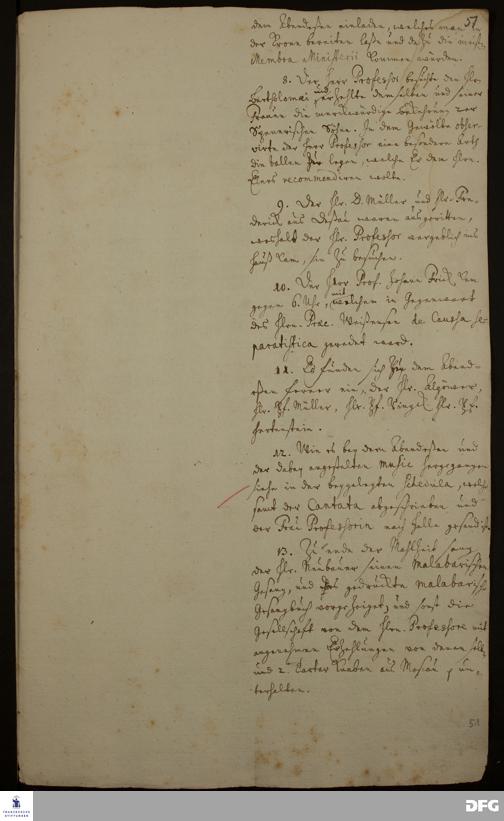 57.
dem Abendeßen einladen, welches man in
der Crone bereiten laße und dazu die meisten
Membra Ministerii kommen würden.
8. Der Herr Professor besuchte den Hrn.
Bartholomäi und erzehlte demselben und seiner
Frauen die merckwürdige Bekehrung der
Söhne. In dem Gewölbe obser-
virte der Herr Professor eine besondere Arth
die ballen zu legen, welche Er dem Hrn.
Elers recommendiren wolte.
9. Der Hr. D. Müller und Hr. Fri-
derici aus waren ausgeritten,
weshalb der Hr. Professor vergeblich ins
Hauß kam, sie zu besuchen.
10. Der Herr Prof. Johann Frick kam
gegen 6. Uhr, mit welchem in Gegenwart
des Hrn. Praec. Weißensee de Caussa se-
paratistica geredet ward.
11. Es funden sich zu dem Abend-
eßen ferner ein, der Hr. Algöwer,
Hr. Pf. Müller, Hr. Pf. Hr. Pf.
Hertenstein.
12. Wie es bey dem Abendeßen und
der dabey angestalten Music hergegangen
siehe in der beygelegten Schedula, welche
samt der Cantata abgeschrieben und
der Frau Professorin nach Halle gesendet
13. Zu Ende der Mahlzeit sang
der Hr. Neubauer seinen Malabarischen
Gesang, und das gedruckte Malabarisch
Gesangbuch vorgezeiget, und sonst die
Gesellschaft von dem Hrn. Professore mit
angenehmen Erzehlungen von denen
und 2. Tartar Knaben aus un-
terhalten.
51
FRANCKESCHE
STIFTUNGEN
DFG